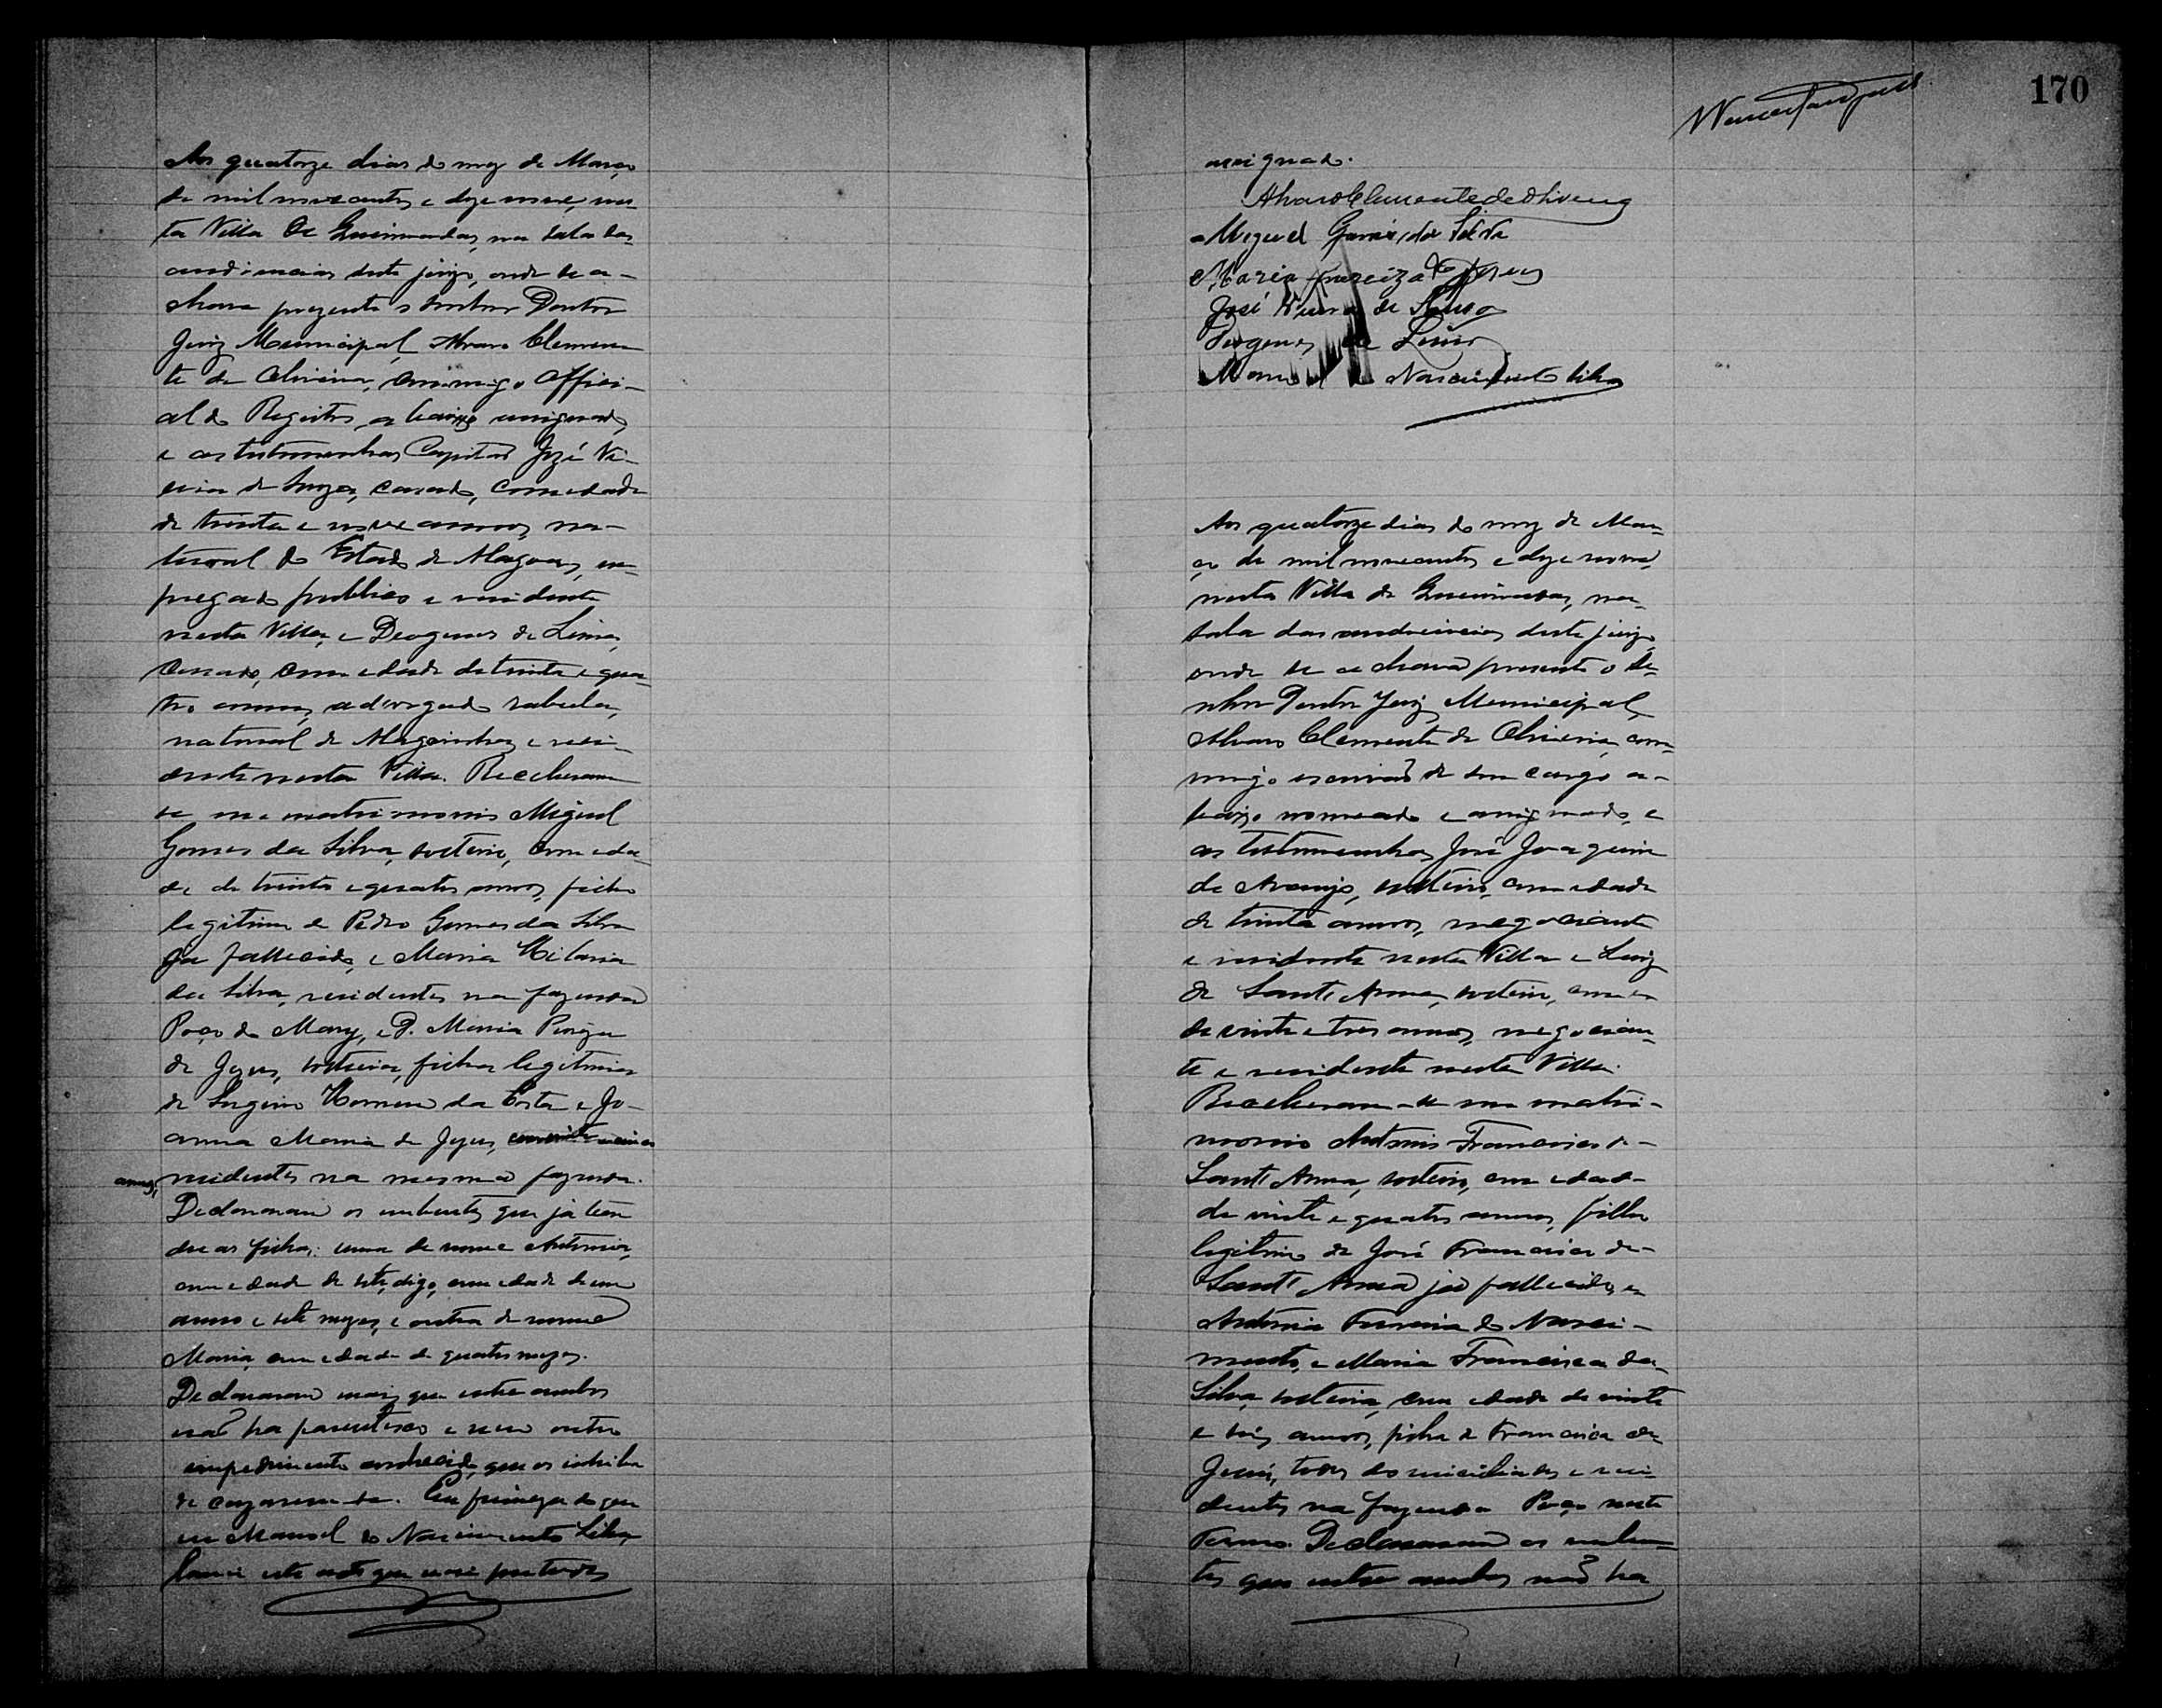 Aos quatorze dias do mez de Março
de mil novecentos e dezenove, nes-
ta Villa de Queimadas, na sala das
audiencias deste juizo, onde se a-
chava prezente o senhor Doutor
Juiz Municipal, Alvaro Clemen-
te de Oliveira, commigo Offici-
al do Registro abaixo assignado,
e as testemunhas Capitão José Vi-
eira de Souza, casado, com edade
de trinta e nove annos, na-
tural do Estado de Alagoas, em-
pregado publico e residente
nesta Villa, e Deogenes de Lima,
casado, com edade de trinta e qua-
tro annos, advogado rabula,
natural de Alagoinhas e resi-
dente nesta Villa. Receberam
se em matrimonio Miguel
Gomes da Silva, solteiro, com eda-
de de trinta e quatro annos, filho
legitimo de Pedro Gomes da Silva
já fallecido, e Maria Hilaria
da Silva, residentes na fazenda
Poço do Mary, e D. Maria
de Jezus, solteira, filha legitima
de Homem da Costa e Jo-
anna Maria de Jezus,
annos, residentes na mesma fazenda.
Declararam os nubentes que já tem
duas filhas: uma de nome Antonia,
com edade de sete, digo, com edade de um
anno e sete mezes, e outra de nome
Maria, com edade de quatro mezes.
Declararam mais que entre ambos
não ha parentesco e nem outro
impedimento conhecido que os inhiba
de cazarem-se. Em firmeza do que
eu Manoel do Nascimento Silva,
lavrei este acto que vae por todos
170
assignado.
Alvaro Clemente de Oliveira
Miguel Gomes da Silva
Maria de Jesus
José Vieira de Souza
Deogenes de Lima
Manoel do Nascimento Silva
Aos quatorze dias do mez de Mar-
ço de mil novecentos e dezenove,
nesta Villa de Queimadas, na
sala das audiencias deste juizo,
onde se achava presente o Se-
nhor Doutor Juiz Municipal,
Alvaro Clemente de Oliveira, com-
migo escrivão de seu cargo a-
baixo nomeado e assignado, e
as testemunhas José Joaquim
de Araujo, solteiro, com edade
de trinta annos, negociante
e residente nesta Villa e Luiz
de Sant'Anna, solteiro, com e-
de vinte e tres annos, negocian-
te e residente nesta Villa.
Receberam-se em matri-
monio Antonio Francisco de
Sant'Anna, solteiro, com edade
de vinte e quatro annos, filho
legitimo de José Francisco de
Sant'Anna já fallecido, e
Antonia Ferreira do Nasci-
mento, e Maria Francisca da
Silva, solteira, com edade de vinte
e tres annos, filha de Francisca de
Jesus, todos domiciliados e resi-
dentes na fazenda Poço neste
Termo. Declararam os nuben-
tes que entre ambos não ha